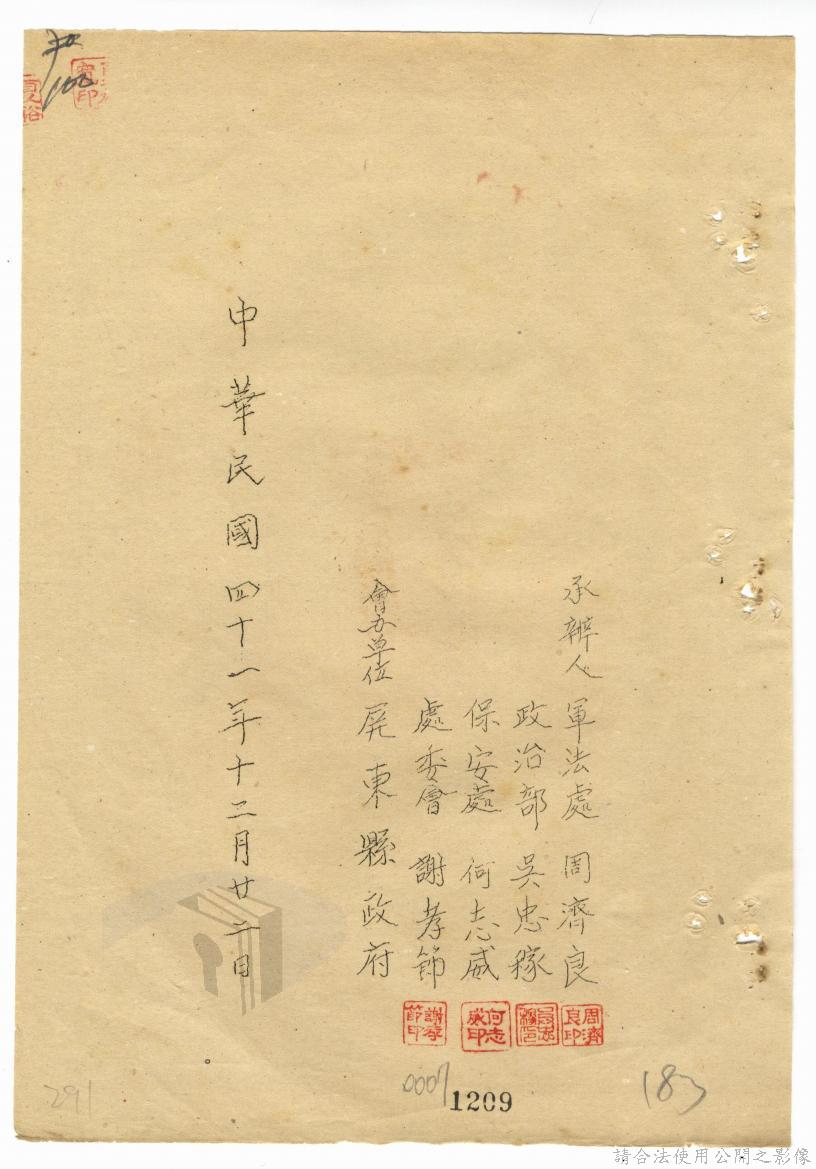 承辦人 軍法處 周濟良
政治部 吳忠稼
保安處 何志威
處委會 謝孝節
會办单位 屏東縣政府
中華民國四十一年十二月廿二日
周濟良印
何志威印
謝孝節印
0007
1209
183
291
請合法使用公開之影像